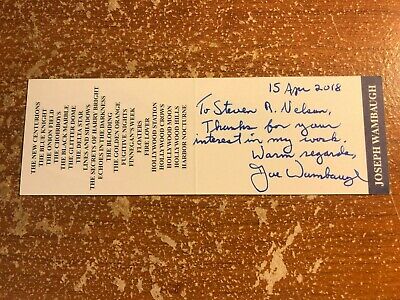 THE NEW CENTURIONS
THE BLUE KNIGHT
THE ONION FIELD
THE CHOIRBOYS
THE BLACK MARBLE
THE GLITTER DOME
THE DELTA STAR
LINES AND SHADOWS
THE SECRETS OF HARRY BRIGHT
ECHOES IN THE DARKNESS
THE BLOODING
THE GOLDEN ORANGE
FUGITIVE NIGHTS
FINNEGAN'S WEEK
FLOATERS
FIRE LOVER
HOLLYWOOD STATION
HOLLYWOOD CROWS
HOLLYWOOD MOON
HOLLYWOOD HILLS
HARBOR NOCTURNE
15 Apr 2018
To Steven A. Nelson,
Thanks for your
interest in my work.
Warm regards,
Joe Wambaugh
JOSEPH WAMBAUGH